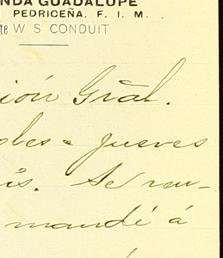 NDA GUADALUPE
PEDRICEÑA, F. I. M.
te W S CONDUIT
ión Gral.
oles = jueves
is. Se reu-
mandé á